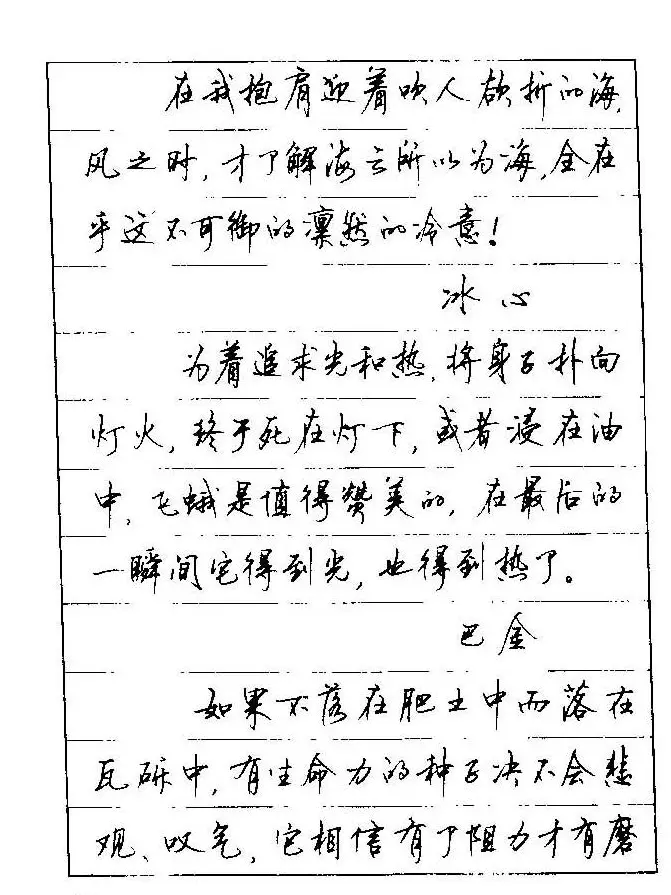 在我抱肩迎着吹人欲折的海
风之时，才了解海云所以为海，全在
乎这不可御的凛然的冷意！
冰心
为着追求光和热，将身子扑向
灯火，终于死在灯下，或者浸在油
中，飞蛾是值得赞美的，在最后的
一瞬间它得到光，也得到热了。
巴金
如果不落在肥土中而落在
瓦砾中，有生命力的种子决不会悲
观、叹气，它相信有了阻力才有磨